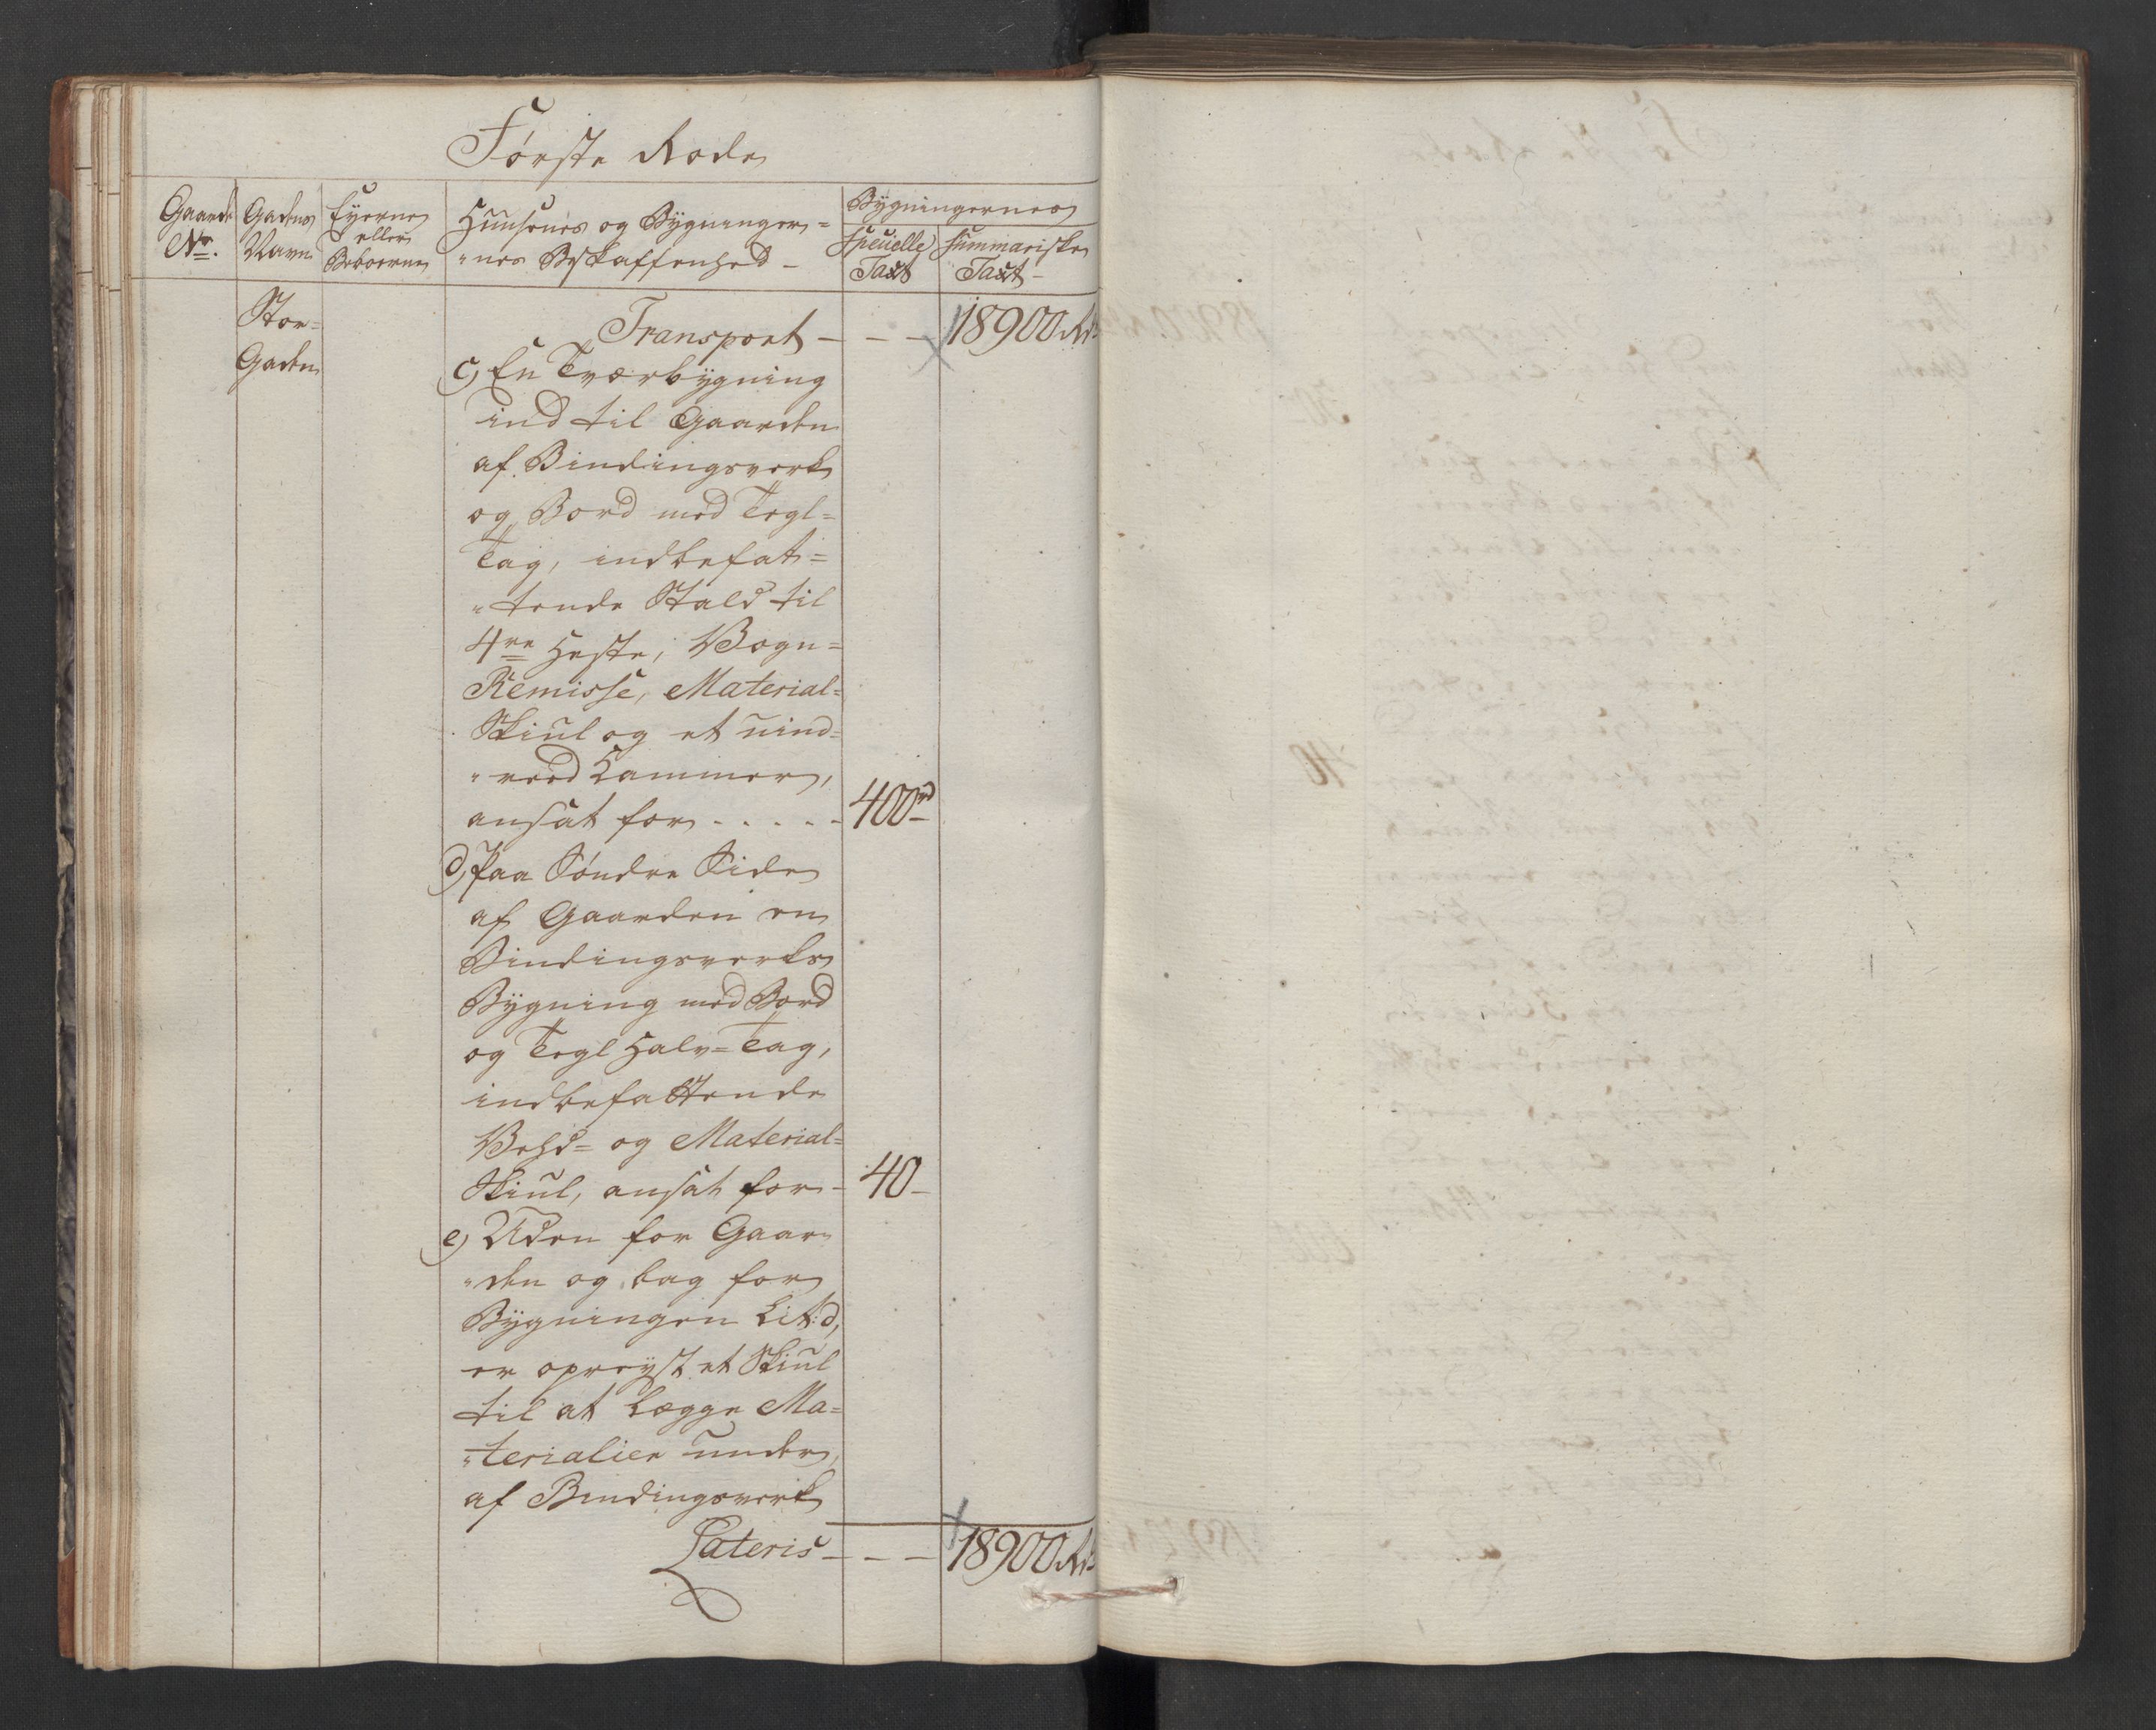 Første Rode
Gaarde No. | Gadens Navn | Eyerne eller Beboerne | Huusenes og Bygninger= "nes Beskaffenhed - | Bygningernes
speuelle Taxt | summariske Taxt -
Stor=
Gaden
Transport - - - 18900 Rd
c, En Tværbygning
ind til Gaarden
af Bindingsverk
og Bord med Tegl=
Tag, indbefat=
"tende Stald til
4re Heste, Vogn=
Remisse, Material=
Skiul og et uind=
"reed Kammer,
ansat for - - - - - 400rd
d, Paa Søndre Side
af Gaarden en
Bindingsverks
Bygning med Bord
og Tegl Halv=Tag,
indbefattende
Vehd= og Material=
Skiul, ansat for - 40 -
e, Uden for Gaar=
"den og bag for
Bygningen Lit: d,
er opreyst et Skiul
til at lægge Ma=
"terialier under,
af Bindingsverk
Lateris - - - 18900 Rd